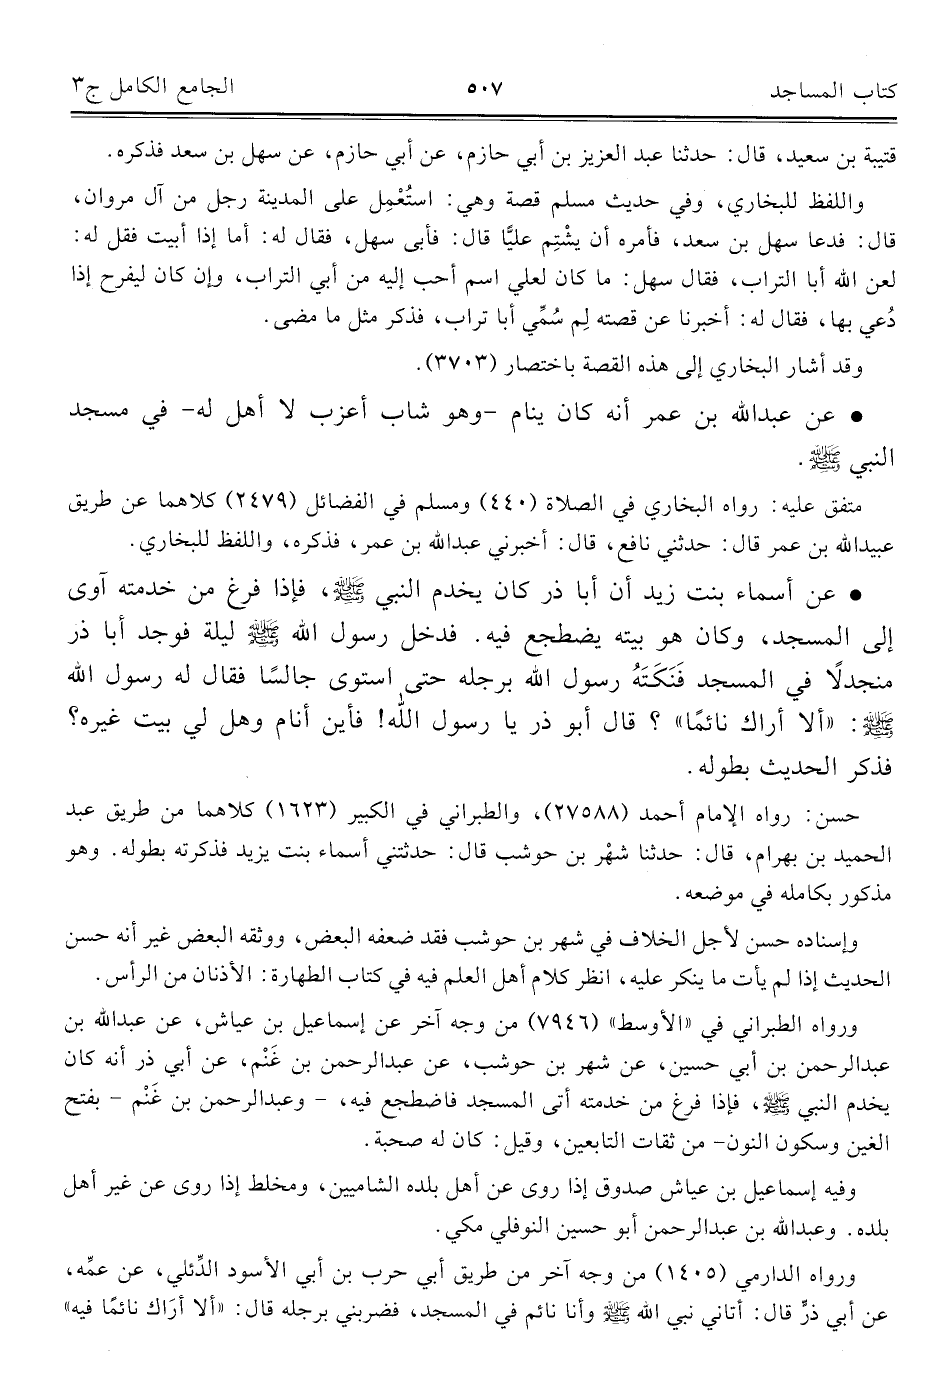 كتاب المساجد ٥٠٧ الجامع الكامل ج٣
قتيبة بن سعيد، قال: حدثنا عبد العزيز بن أبي حازم، عن أبي حازم، عن سهل بن سعد فذكره.
واللفظ للبخاري، وفي حديث مسلم قصة وهي: استُعْمِل على المدينة رجل من آل مروان،
قال: فدعا سهل بن سعد، فأمره أن يشْتِم عليًّا قال: فأبى سهل، فقال له: أما إذا أبيت فقل له:
لعن الله أبا التراب، فقال سهل: ما كان لعلي اسم أحب إليه من أبي التراب، وإن كان ليفرح إذا
دُعي بها، فقال له: أخبرنا عن قصته لِم سُمِّي أبا تراب، فذكر مثل ما مضى.
وقد أشار البخاري إلى هذه القصة باختصار (٣٧٠٣).
• عن عبدالله بن عمر أنه كان ينام -وهو شاب أعزب لا أهل له- في مسجد
النبي ﷺ.
متفق عليه: رواه البخاري في الصلاة (٤٤٠) ومسلم في الفضائل (٢٤٧٩) كلاهما عن طريق
عبيدالله بن عمر قال: حدثني نافع، قال: أخبرني عبدالله بن عمر، فذكره، واللفظ للبخاري.
• عن أسماء بنت زيد أن أبا ذر كان يخدم النبي ﷺ، فإذا فرغ من خدمته آوى
إلى المسجد، وكان هو بيته يضطجع فيه. فدخل رسول الله ﷺ ليلة فوجد أبا ذر
منجدلًا في المسجد فَنَكَتَهُ رسول الله برجله حتى استوى جالسًا فقال له رسول الله
ﷺ: «ألا أراك نائمًا» ؟ قال أبو ذر يا رسول الله! فأين أنام وهل لي بيت غيره؟
فذكر الحديث بطوله.
حسن: رواه الإمام أحمد (٢٧٥٨٨)، والطبراني في الكبير (١٦٢٣) كلاهما من طريق عبد
الحميد بن بهرام، قال: حدثنا شهْر بن حوشب قال: حدثتني أسماء بنت يزيد فذكرته بطوله. وهو
مذكور بكامله في موضعه.
وإسناده حسن لأجل الخلاف في شهر بن حوشب فقد ضعفه البعض، ووثقه البعض غير أنه حسن
الحديث إذا لم يأت ما ينكر عليه، انظر كلام أهل العلم فيه في كتاب الطهارة: الأذنان من الرأس.
ورواه الطبراني في «الأوسط» (٧٩٤٦) من وجه آخر عن إسماعيل بن عياش، عن عبدالله بن
عبدالرحمن بن أبي حسين، عن شهر بن حوشب، عن عبدالرحمن بن غَنْم، عن أبي ذر أنه كان
يخدم النبي ﷺ، فإذا فرغ من خدمته أتى المسجد فاضطجع فيه، - وعبدالرحمن بن غَنْم - بفتح
الغين وسكون النون- من ثقات التابعين، وقيل: كان له صحبة.
وفيه إسماعيل بن عياش صدوق إذا روى عن أهل بلده الشاميين، ومخلط إذا روى عن غير أهل
بلده. وعبدالله بن عبدالرحمن أبو حسين النوفلي مكي.
ورواه الدارمي (١٤٠٥) من وجه آخر من طريق أبي حرب بن أبي الأسود الدِّئلي، عن عمِّه،
عن أبي ذرٍّ قال: أتاني نبي الله ﷺ وأنا نائم في المسجد، فضربني برجله قال: «ألا أرَاك نائمًا فيه»